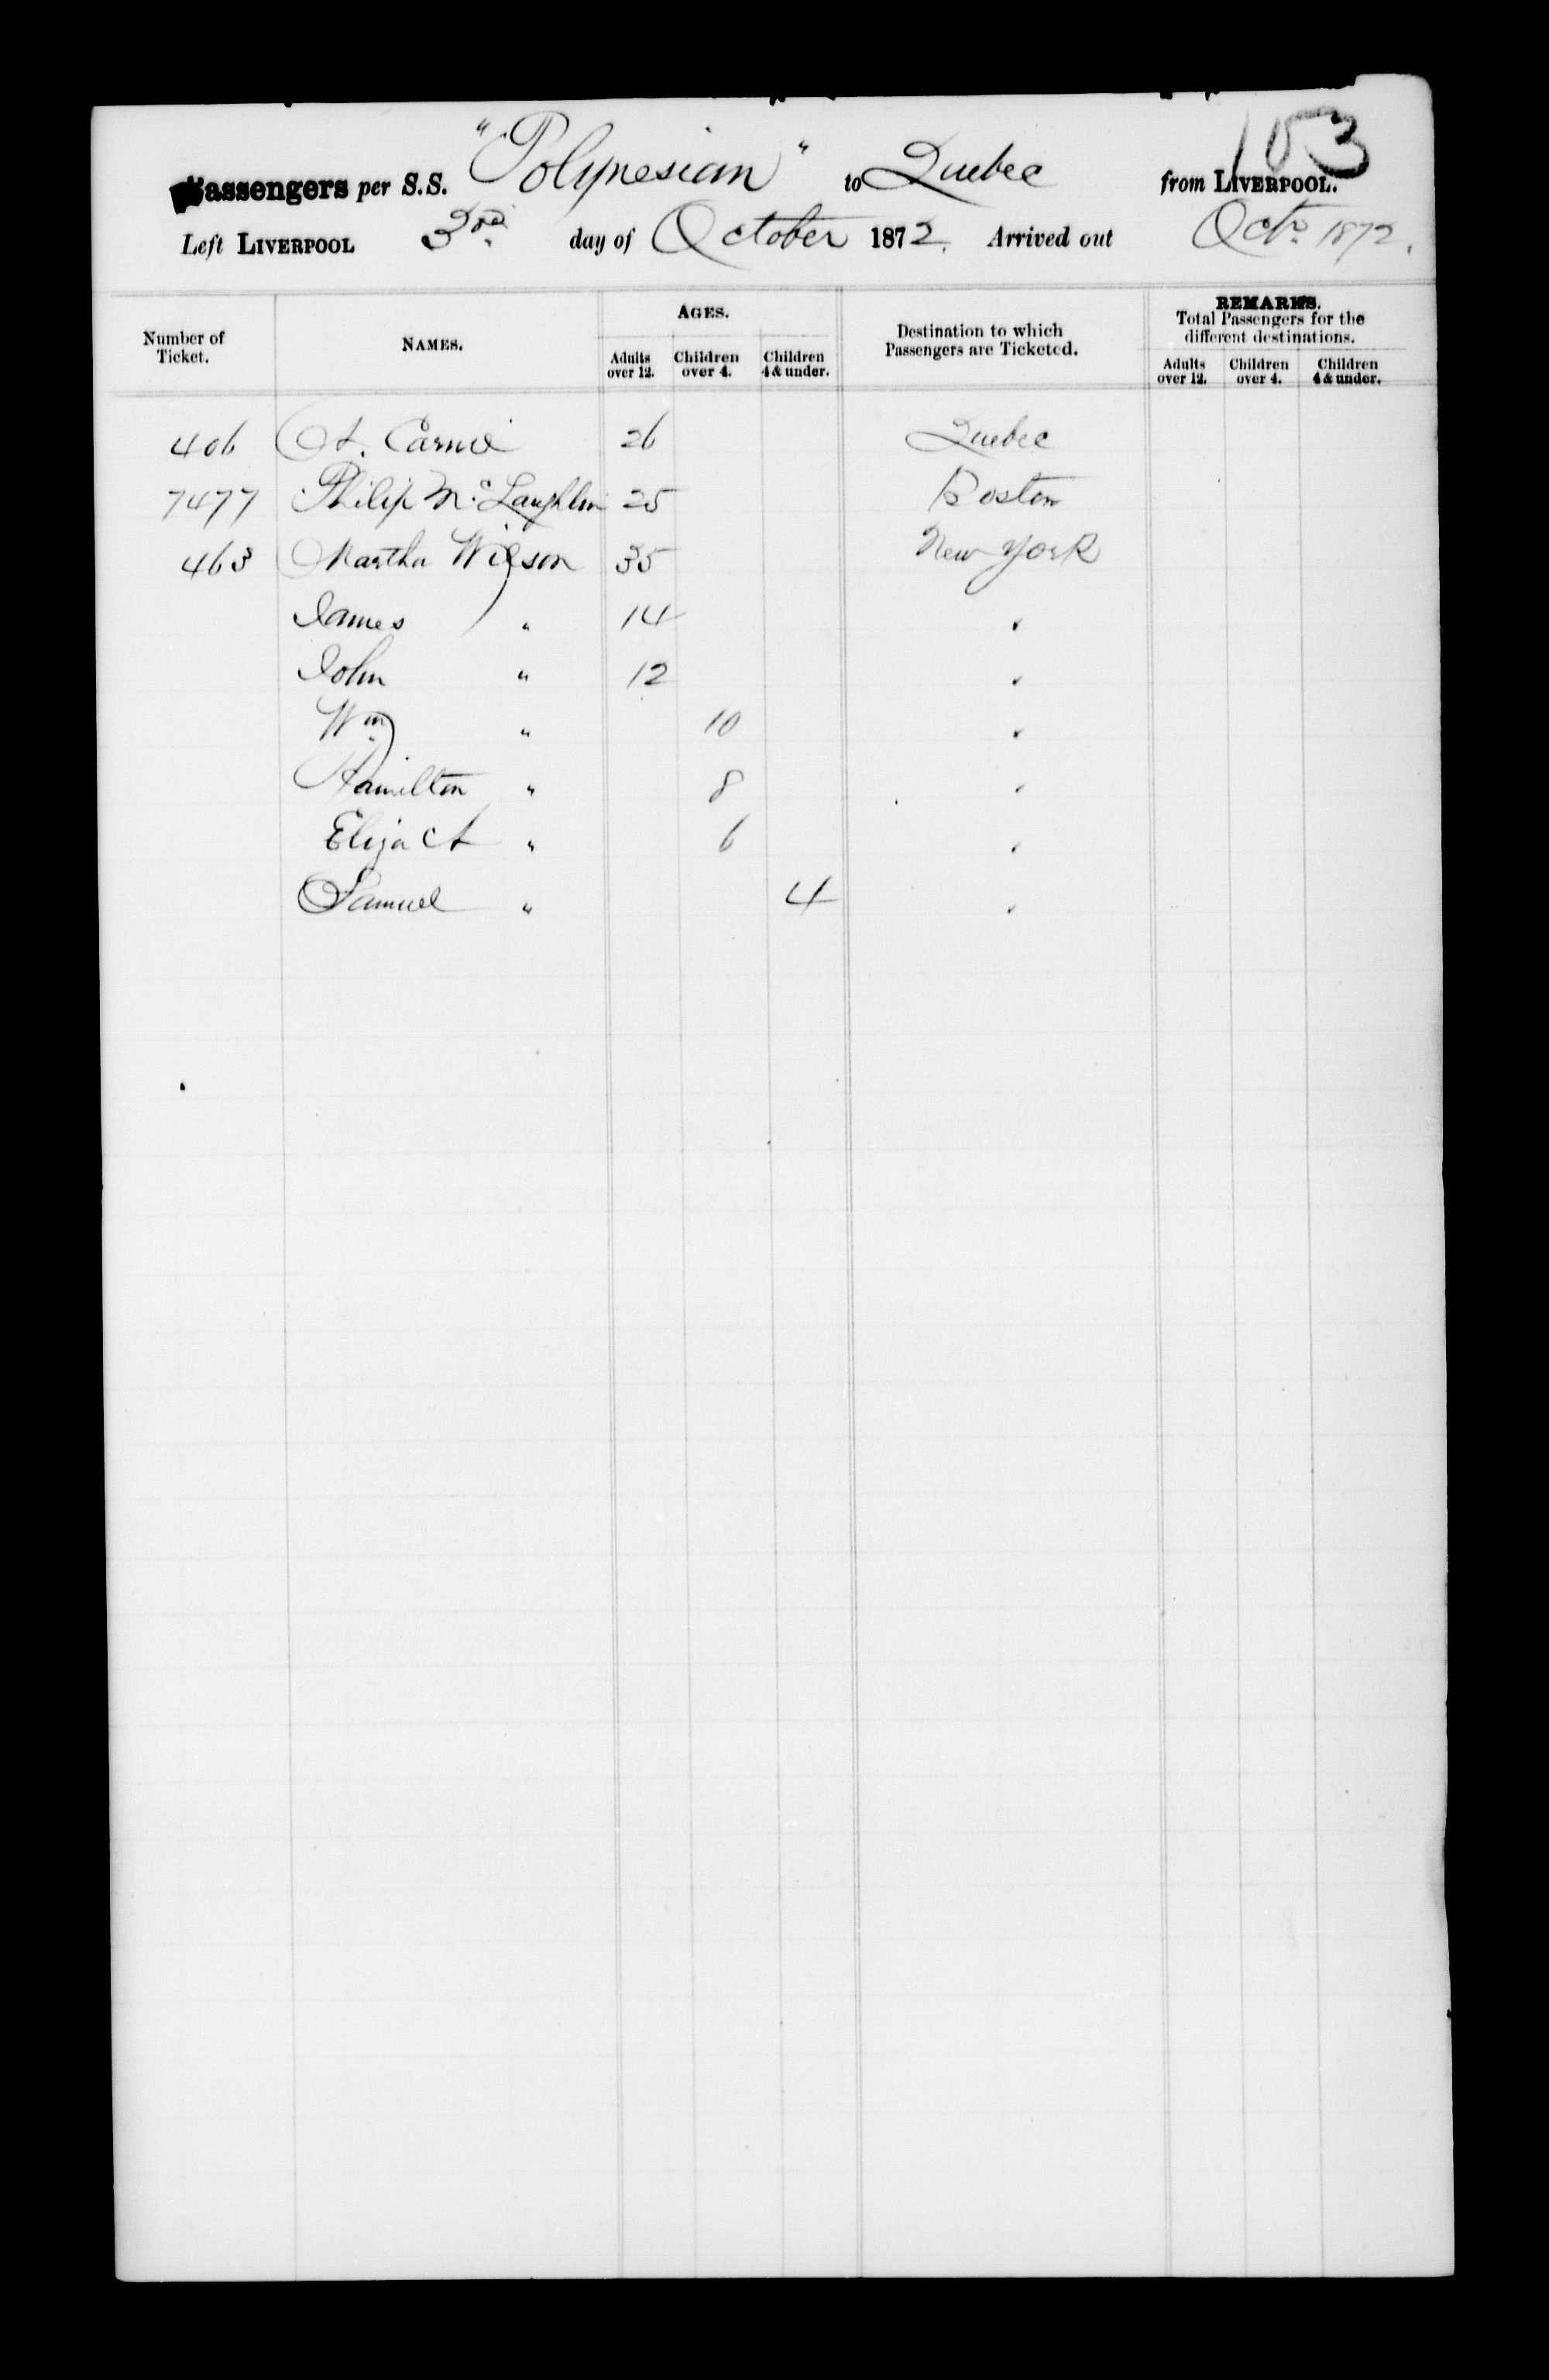 103
Passengers per S.S. "Polynesian" to Quebec from LIVERPOOL.
Left LIVERPOOL 3rd day of October 1872. Arrived out Octr 1872.
Number of Ticket. NAMES. AGES. Destination to which Passengers are Ticketed. REMARKS. Total Passengers for the different destinations.
Adults over 12. Children over 4. Children 4 & under. Adults over 12. Children over 4. Children 4 & under.
406 A. Carnie 26 Quebec
7477 Philip McLaughlin 25 Boston
463 Martha Wilson 35 New York
James " 14 "
John " 12 "
Wm " 10 "
Hamilton " 8 "
Eliza A " 6 "
Samuel " 4 "